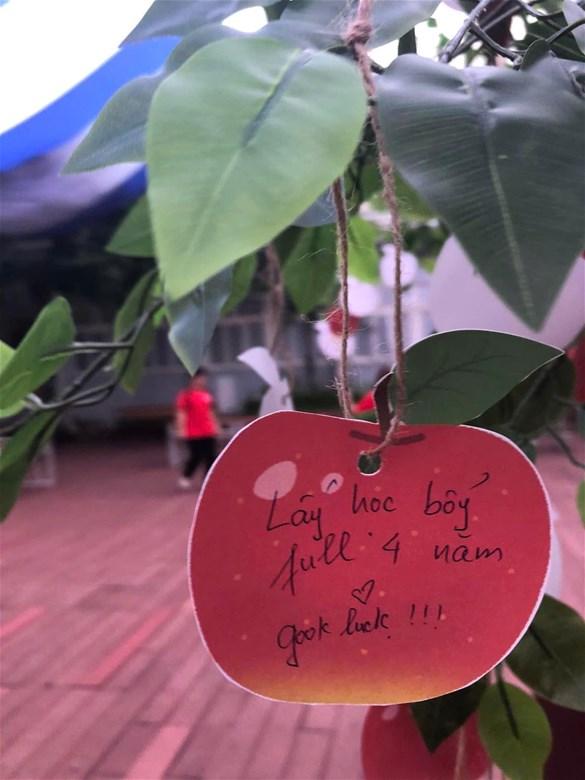 Lấy học bổng
full 4 năm
gook luck !!!